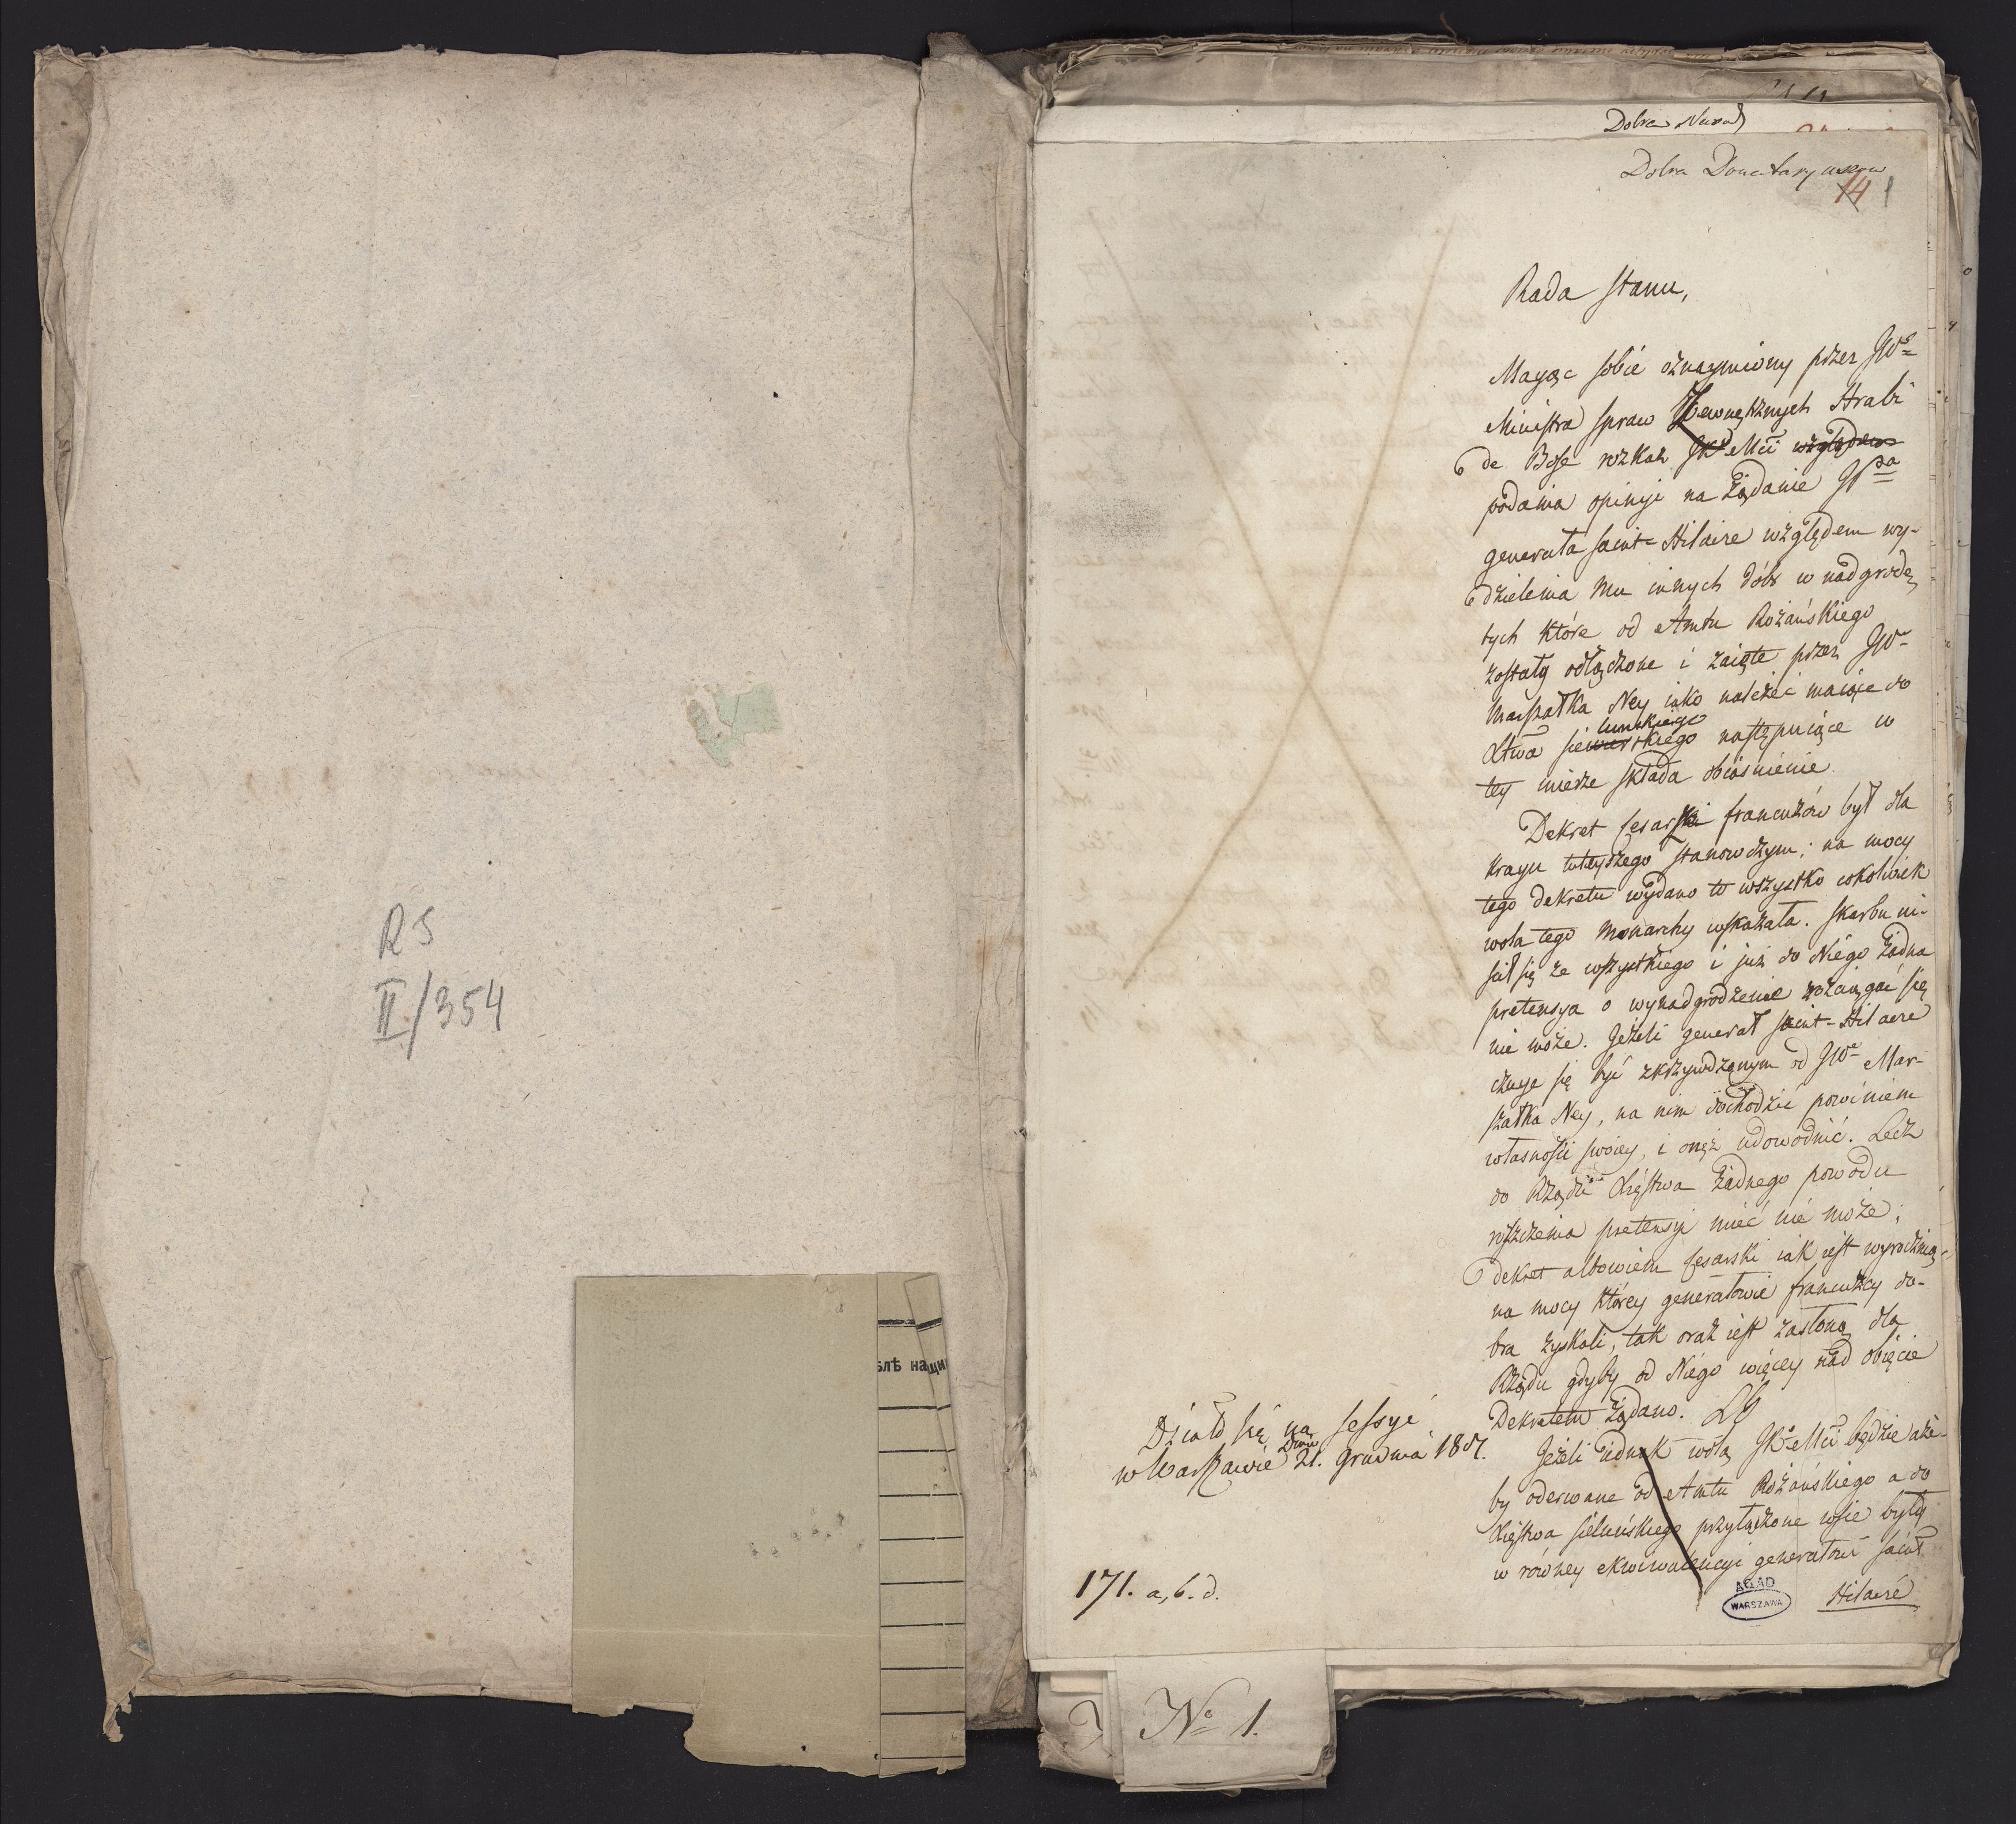 RS
II/354
ѣлѣ на
Dobra Narad
Dobra Donataryuszow
14 1
Rada Stanu,
Maiąc sobie oznaymiony przez JWo
Ministra Spraw Zewnętrznych Hrabi
de Bose rozkaz JKo Mci względem
podania opinyi na żądanie JPa
generała Saint-Hilaire względem wy-
dzielenia mu innych dóbr w nadgrodę
tych które od Amtu Rożańskiego
zostały odłączone i zaięte przez JWo
Marszałka Ney iako należeć maiące do
Xtwa siewierskiego luńskiego następuiące w
tey mierze składa obiaśnienie.
Dekret Cesarski francuzów był dla
kraju tuteyszego stanowczym; na mocy
tego dekretu wydano to wszystko cokolwiek
wola tego Monarchy wskazała. Skarb ui-
ścił się ze wszystkiego i już do Niego żadna
pretensya o wynadgrodzenie rozciągać się
nie może. Jeżeli generał Saint-Hilaire
czuje się być zkrzywdzonym od JWo Mar-
szałka Ney, na nim dochodzić powinien
własności swoiey, i onęż udowodnić. Lecz
do Rządu Xięstwa żadnego powodu
roszczenia pretensyi mieć nie może;
dekret albowiem Cesarski iak iest wyrocznią,
na mocy którey generałowie francuzcy do-
bra zyskali, tak oraz iest zasłoną dla
Rządu gdyby od Niego więcey nad obięcie
Dekretem żądano.
Jeżeli iednak wolą JKo Mci będzie aże-
by oderwane od Amtu Rożańskiego a do
Xięstwa sieluńskiego przyłączone wsie były
w równey ekwiwalencyi generałowi Saint
Hilaire
Działo się na Sessyi
w Warszawie Dnia 21. Grudnia 1807.
171. a, b. d.
AGAD
WARSZAWA
No 1.